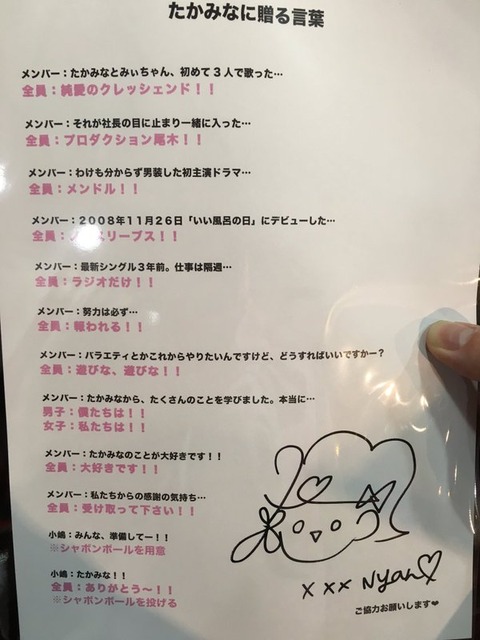 たかみなに贈る言葉
メンバー：たかみなとみぃちゃん、初めて３人で歌った…
全員：純愛のクレッシェンド！！
メンバー：それが社長の目に止まり一緒に入った…
全員：プロダクション尾木！！
メンバー：わけも分からず男装した初主演ドラマ…
全員：メンドル！！
メンバー：２００８年１１月２６日「いい風呂の日」にデビューした…
全員：ノースリーブス！！
メンバー：最新シングル３年前。仕事は隔週…
全員：ラジオだけ！！
メンバー：努力は必ず…
全員：報われる！！
メンバー：バラエティとかこれからやりたいんですけど、どうすればいいですかー？
全員：遊びな、遊びな！！
メンバー：たかみなから、たくさんのことを学びました。本当に…
男子：僕たちは！！
女子：私たちは！！
メンバー：たかみなのことが大好きです！！
全員：大好きです！！
メンバー：私たちからの感謝の気持ち…
全員：受け取って下さい！！
小嶋：みんな、準備してー！！
※シャボンボールを用意
小嶋：たかみな！！
全員：ありがとう〜！！
※シャボンボールを投げる
xxx Nyan♡
ご協力お願いします❤